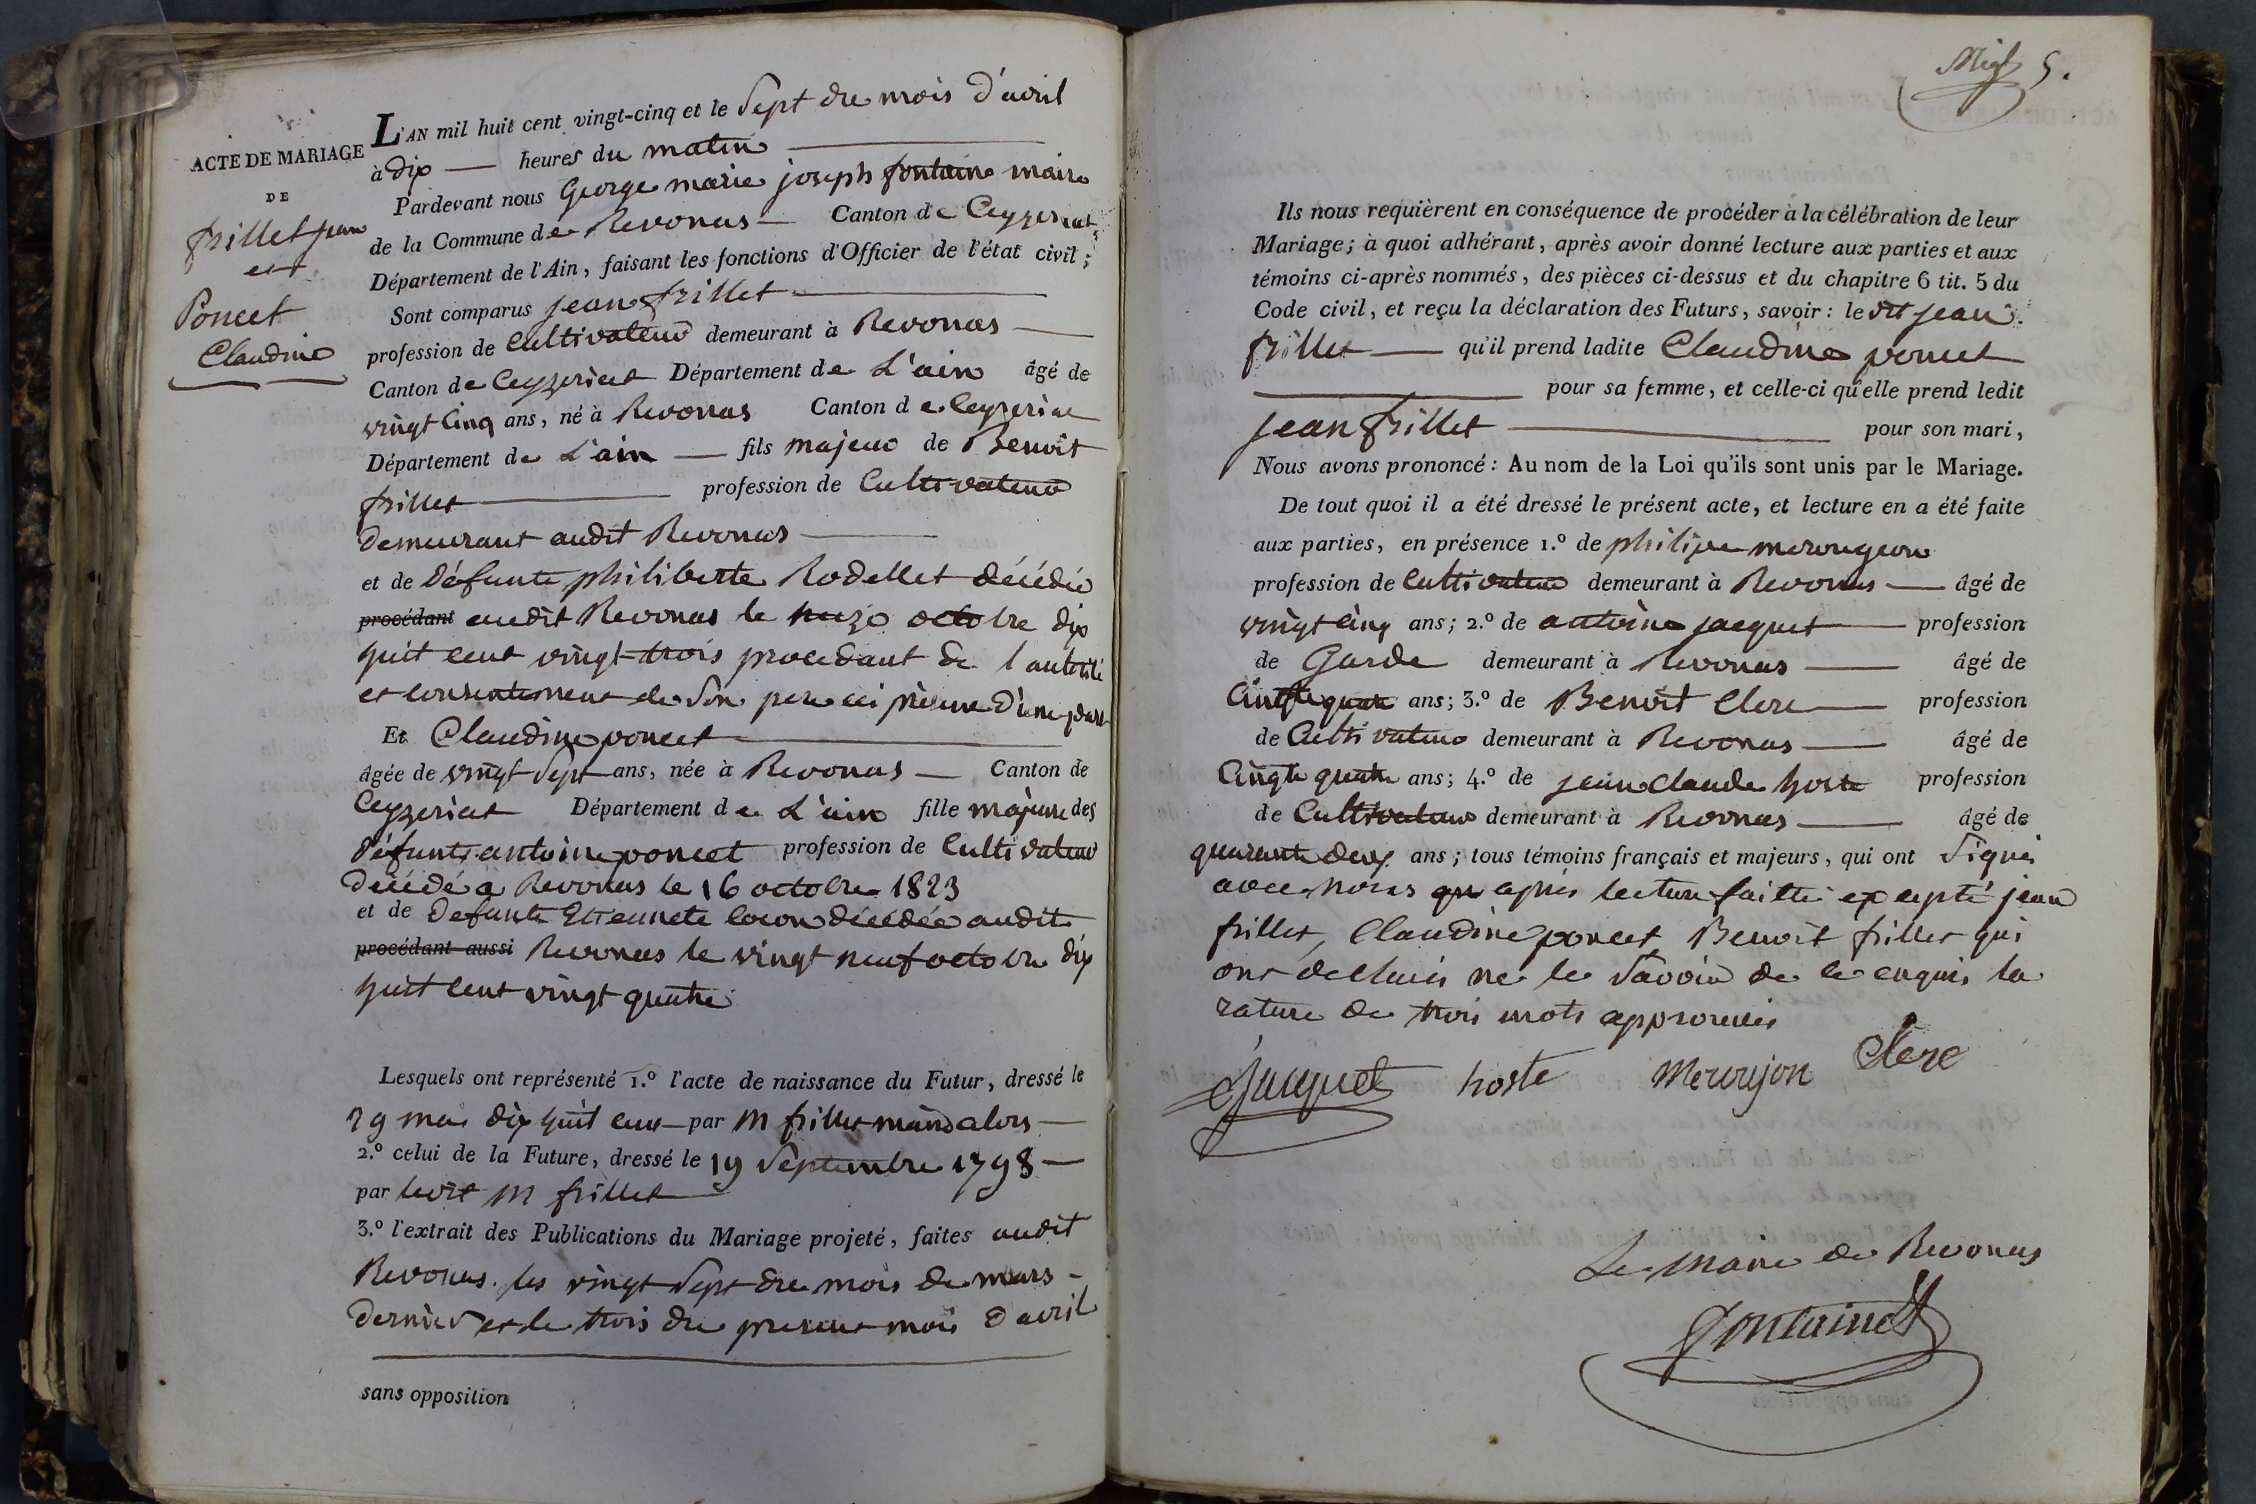 L'AN mil huit cent vingt-cinq et le Sept du mois d'avril
ACTE DE MARIAGE
DE
frillet jean
et
Poncet
Claudine
à dix heures du matin
Pardevant nous George marie joseph fontaine maire
de la Commune de Revonas Canton de Ceyzeriat
Département de l'Ain, faisant les fonctions d'Officier de l'état civil;
Sont comparus jean frillet
profession de Cultivateur demeurant à Revonas
Canton de Ceyzeriat Département de L'ain âgé de
vingt Cinq ans, né à Revonas Canton de Ceyzeriat
Département de L'ain fils majeur de Benoit
frillet profession de Cultivateur
demeurant audit Revonas
et de défunte philiberte Rodellet décédée
procédant audit Revonas le octobre dix
huit cent vingt trois procedant de l'autorité
et consentement de son pere ici présent d'une part
Et Claudine poncet
âgée de vingt Sept ans, née à Revonas Canton de
Ceyzeriat Département de L'ain fille majeure des
défunts antoine poncet profession de Cultivateur
décédé a Revonas le 16 octobre 1823
et de defunte Etiennete locon décédée audit
procédant aussi Revonas le vingt neuf octobre dix
huit cent vingt quatre
Lesquels ont représenté 1.º l'acte de naissance du Futur, dressé le
29 mai dix huit cent par M frillet maire alors
2.º celui de la Future, dressé le 19 Septembre 1798
par ledit M frillet
3.º l'extrait des Publications du Mariage projeté, faites audit
Revonas les vingt Sept du mois de mars
dernier et le trois du present mois d'avril
sans opposition
5.
Ils nous requièrent en conséquence de procéder à la célébration de leur
Mariage; à quoi adhérant, après avoir donné lecture aux parties et aux
témoins ci-après nommés, des pièces ci-dessus et du chapitre 6 tit. 5 du
Code civil, et reçu la déclaration des Futurs, savoir: le dit jean
frillet qu'il prend ladite Claudine poncet
pour sa femme, et celle-ci qu'elle prend ledit
jean frillet pour son mari,
Nous avons prononcé: Au nom de la Loi qu'ils sont unis par le Mariage.
De tout quoi il a été dressé le présent acte, et lecture en a été faite
aux parties, en présence 1.º de philipe merougeon
profession de Cultivateur demeurant à Revonas âgé de
vingt cinq ans; 2.º de antoine jacquet profession
de Garde demeurant à Revonas âgé de
ans; 3.º de Benoit Clere profession
de Cultivateur demeurant à Revonas âgé de
Cinqte quatre ans; 4.º de jean claude hoste profession
de Cultivateur demeurant à Revonas âgé de
quarante deux ans; tous témoins français et majeurs, qui ont Signé
avec nous apres lecture faitte excepté jean
frillet, Claudine poncet, Benoit frillet qui
ont déclaré ne le Savoir de ce enquis la
rature de trois mots approuvés
Jacquet hoste Merovjon Clere
Le Maire de Revonas
Fontaine